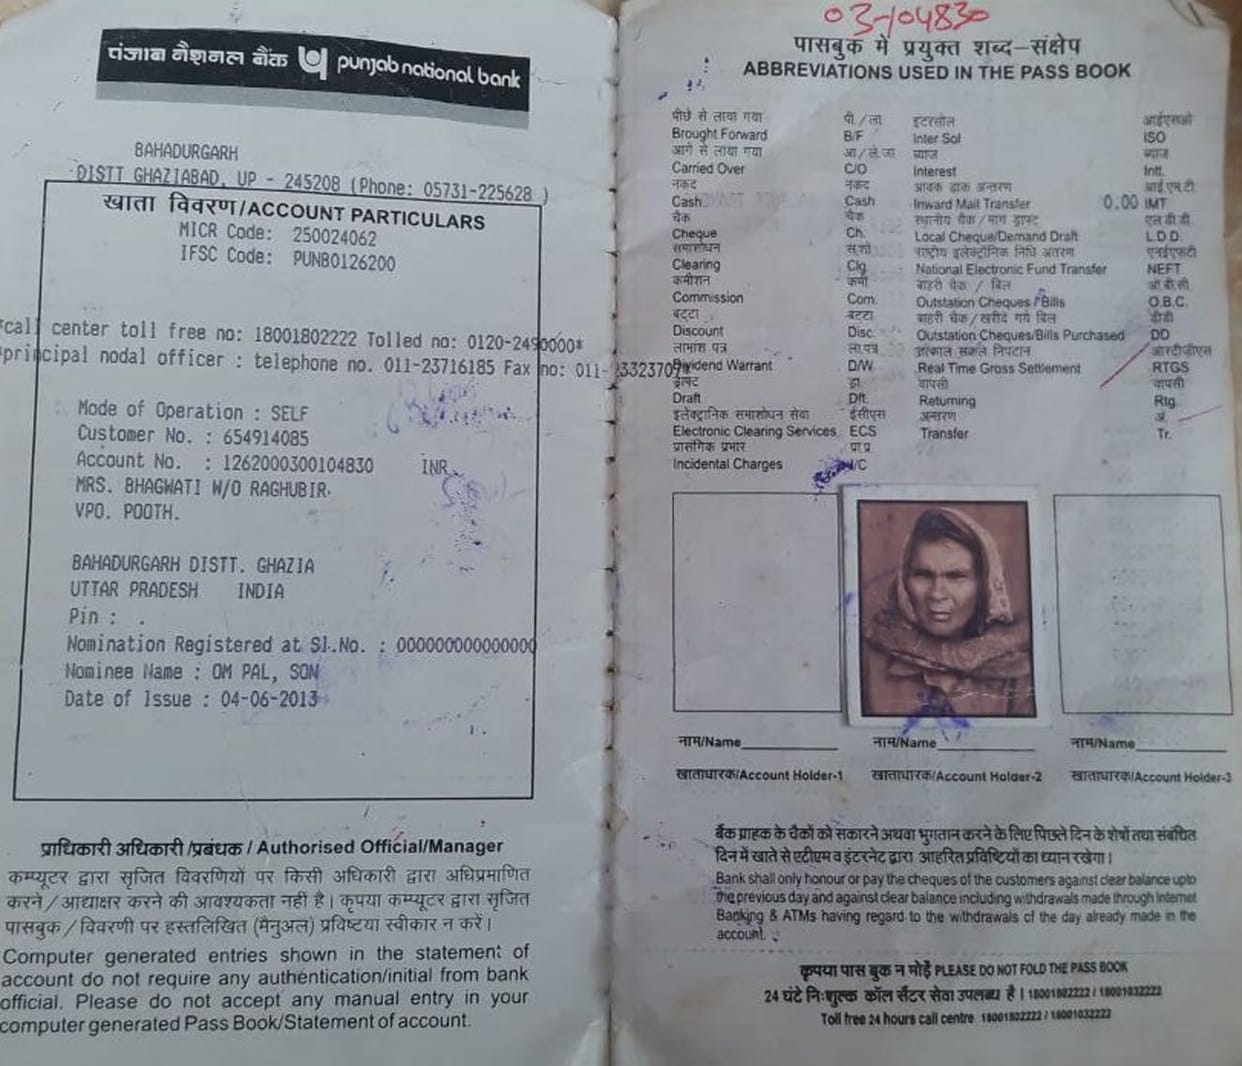 पंजाब नैशनल बैंक punjab national bank
BAHADURGARH
DISTT GHAZIABAD, UP - 245208 (Phone: 05731-225628 )
खाता विवरण/ACCOUNT PARTICULARS
MICR Code: 250024062
IFSC Code: PUNB0126200
*call center toll free no: 18001802222 Tolled no: 0120-2490000*
*principal nodal officer : telephone no. 011-23716185 Fax no: 011-23323707*
Mode of Operation : SELF
Customer No. : 654914085
Account No. : 1262000300104830 INR
MRS. BHAGWATI W/O RAGHUBIR.
VPO. POOTH.
BAHADURGARH DISTT. GHAZIA
UTTAR PRADESH INDIA
Pin : .
Nomination Registered at Sl.No. : 000000000000000
Nominee Name : OM PAL, SON
Date of Issue : 04-06-2013
प्राधिकारी अधिकारी/प्रबंधक / Authorised Official/Manager
कम्प्यूटर द्वारा सृजित विवरणियों पर किसी अधिकारी द्वारा अधिप्रमाणित
करने / आद्याक्षर करने की आवश्यकता नहीं है। कृपया कम्प्यूटर द्वारा सृजित
पासबुक / विवरणी पर हस्तलिखित (मैनुअल) प्रविष्टिया स्वीकार न करें।
Computer generated entries shown in the statement of
account do not require any authentication/initial from bank
official. Please do not accept any manual entry in your
computer generated Pass Book/Statement of account.
03-104830
पासबुक में प्रयुक्त शब्द-संक्षेप
ABBREVIATIONS USED IN THE PASS BOOK
पीछे से लाया गया पी./ला इंटरसोल आईएसओ
Brought Forward B/F Inter Sol ISO
आगे से लाया गया आ/ले.जा ब्याज ब्याज
Carried Over C/O Interest Intt.
नकद नकद आवक डाक अन्तरण आई.एम.टी
Cash Cash Inward Mail Transfer 0.00 IMT
चैक चैक स्थानीय चैक/मांग ड्राफ्ट एल.डी.डी.
Cheque Ch. Local Cheque/Demand Draft L.D.D.
समाशोधन स.शो राष्ट्रीय इलेक्ट्रॉनिक निधि अंतरण एनईएफटी
Clearing Clg National Electronic Fund Transfer NEFT
कमीशन कमी बाहरी चैक / बिल ओ.बी.सी.
Commission Com. Outstation Cheques / Bills O.B.C.
बट्टा बट्टा बाहरी चैक/खरीदे गये बिल डीडी
Discount Disc. Outstation Cheques/Bills Purchased DD
लाभांश पत्र ला.पत्र तत्काल सकल निपटान आरटीजीएस
Dividend Warrant D/W Real Time Gross Settlement RTGS
ड्राफ्ट ड्रा. वापसी वापसी
Draft Dft. Returning Rtg.
इलेक्ट्रानिक समाशोधन सेवा ईसीएस अन्तरण अं.
Electronic Clearing Services ECS Transfer Tr.
प्रासंगिक प्रभार प्रा.प्र
Incidental Charges I/C
नाम/Name नाम/Name नाम/Name
खाताधारक/Account Holder-1 खाताधारक/Account Holder-2 खाताधारक/Account Holder-3
बैंक ग्राहक के चैकों को सकारने अथवा भुगतान करने के लिए पिछले दिन के शेषों तथा संबंधित
दिन में खाते से एटीएम व इंटरनेट द्वारा आहरित प्रविष्टियों का ध्यान रखेगा।
Bank shall only honour or pay the cheques of the customers against clear balance upto
the previous day and against clear balance including withdrawals made through Internet
Banking & ATMs having regard to the withdrawals of the day already made in the
account.
कृपया पास बुक न मोड़ें PLEASE DO NOT FOLD THE PASS BOOK
24 घंटे निःशुल्क कॉल सैंटर सेवा उपलब्ध है। 18001802222 / 18001032222
Toll free 24 hours call centre 18001802222 / 18001032222